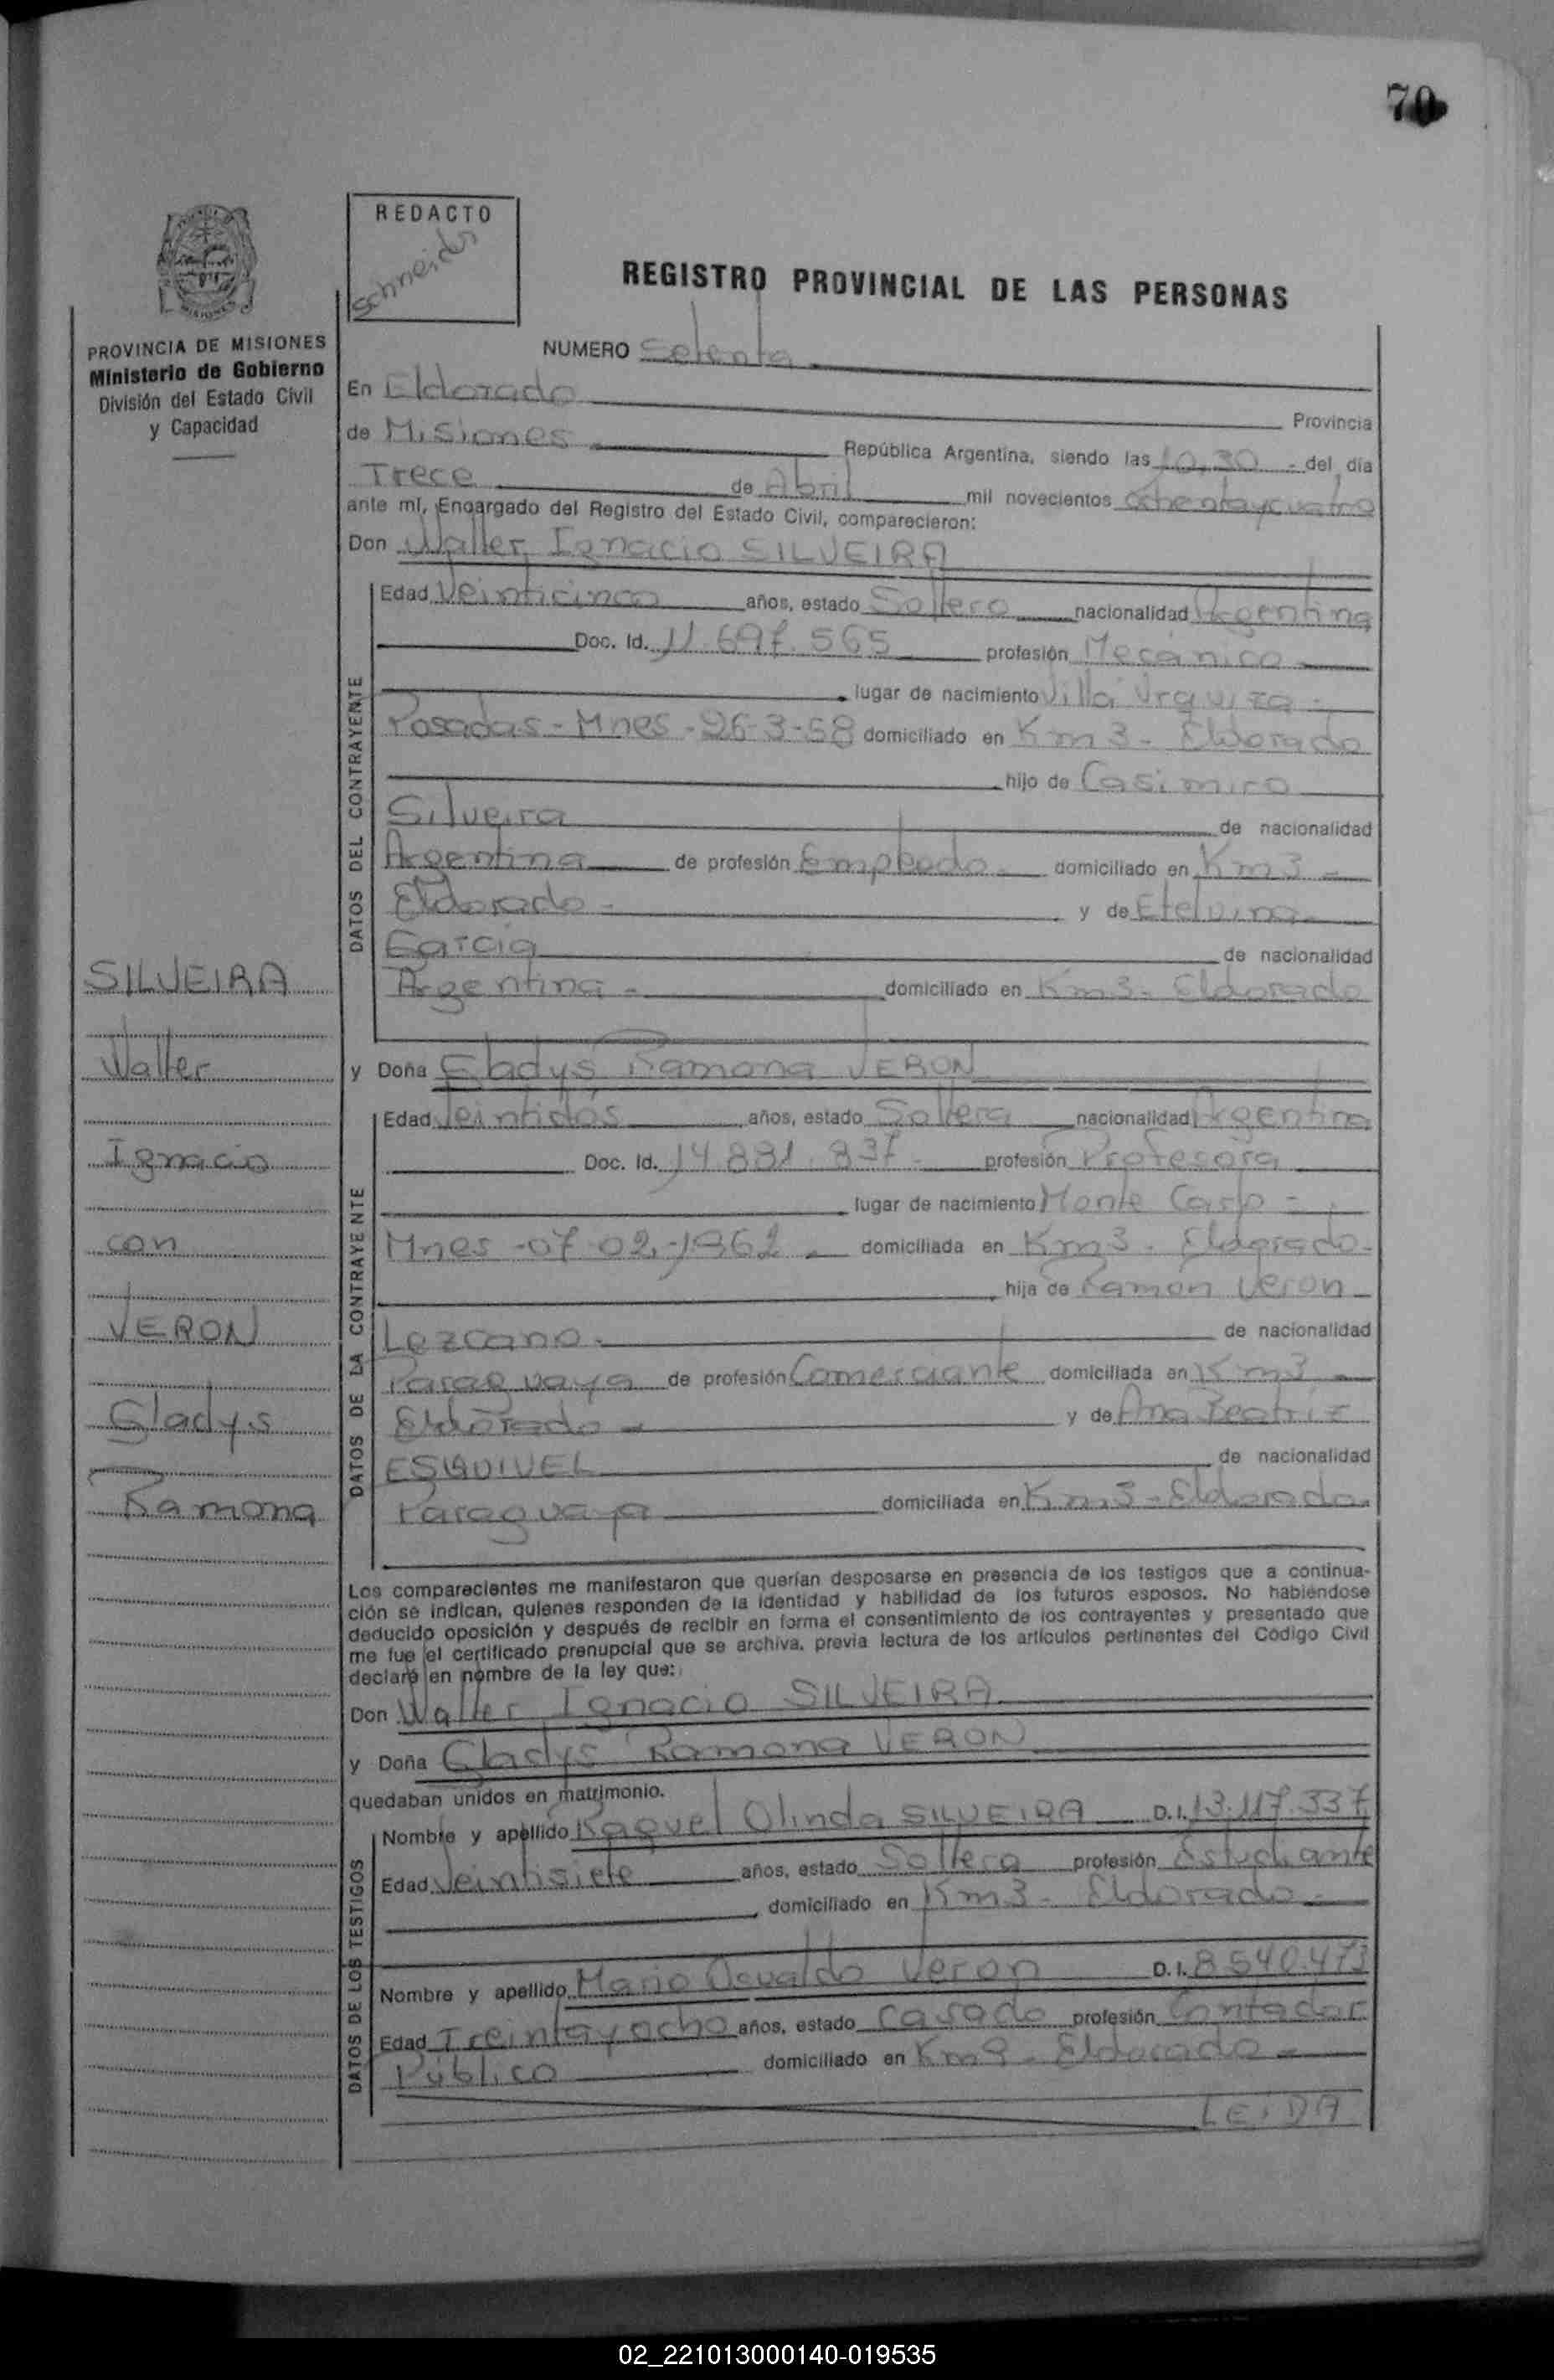 70
REDACTO
Schneider
REGISTRO PROVINCIAL DE LAS PERSONAS
PROVINCIA DE MISIONES
Ministerio de Gobierno
División del Estado Civil
y Capacidad
NUMERO Setenta
En Eldorado Provincia
de Misiones República Argentina, siendo las 10,30 - del día
Trece de Abril mil novecientos ochentaycuatro
ante mí, Encargado del Registro del Estado Civil, comparecieron:
Don Walter Ignacio SILVEIRA
DATOS DEL CONTRAYENTE
Edad Veinticinco años, estado Soltero nacionalidad Argentina
Doc. Id. 11.697.565 profesión Mecánico
lugar de nacimiento Villa Urquiza -
Posadas - Mnes - 26-3-58 domiciliado en Km 3 - Eldorado
hijo de Casimiro
Silveira de nacionalidad
Argentina de profesión Empleado domiciliado en Km3 -
Eldorado - y de Etelvina
Garcia de nacionalidad
Argentina - domiciliado en Km3 - Eldorado
SILVEIRA
Walter
Ignacio
con
VERON
Gladys
Ramona
y Doña Gladys Ramona VERON
DATOS DE LA CONTRAYENTE
Edad Veintidós años, estado Soltera nacionalidad Argentina
Doc. Id. 14.881.837 - profesión Profesora
lugar de nacimiento Monte Carlo -
Mnes - 07-02-1962 - domiciliada en Km3 - Eldorado -
hija de Ramón Veron
Lezcano - de nacionalidad
Paraguaya de profesión Comerciante domiciliada en Km3 -
Eldorado - y de Ana Beatriz
ESQUIVEL de nacionalidad
Paraguaya domiciliada en Km3 - Eldorado.
Los comparecientes me manifestaron que querían desposarse en presencia de los testigos que a continua-
ción se indican, quienes responden de la identidad y habilidad de los futuros esposos. No habiéndose
deducido oposición y después de recibir en forma el consentimiento de los contrayentes y presentado que
me fue el certificado prenupcial que se archiva, previa lectura de los artículos pertinentes del Código Civil
declaré en nombre de la ley que:
Don Walter Ignacio SILVEIRA
y Doña Gladys Ramona VERON
quedaban unidos en matrimonio.
DATOS DE LOS TESTIGOS
Nombre y apellido Raquel Olinda SILVEIRA D.I. 13.117.337
Edad Veintisiete años, estado Soltera profesión Estudiante
domiciliado en Km3 - Eldorado -
Nombre y apellido Mario Osvaldo Veron D.I. 8.540.473
Edad Treintayocho años, estado Casado profesión Contador
Público domiciliado en Km9 - Eldorado -
LEIDA
02_221013000140-019535